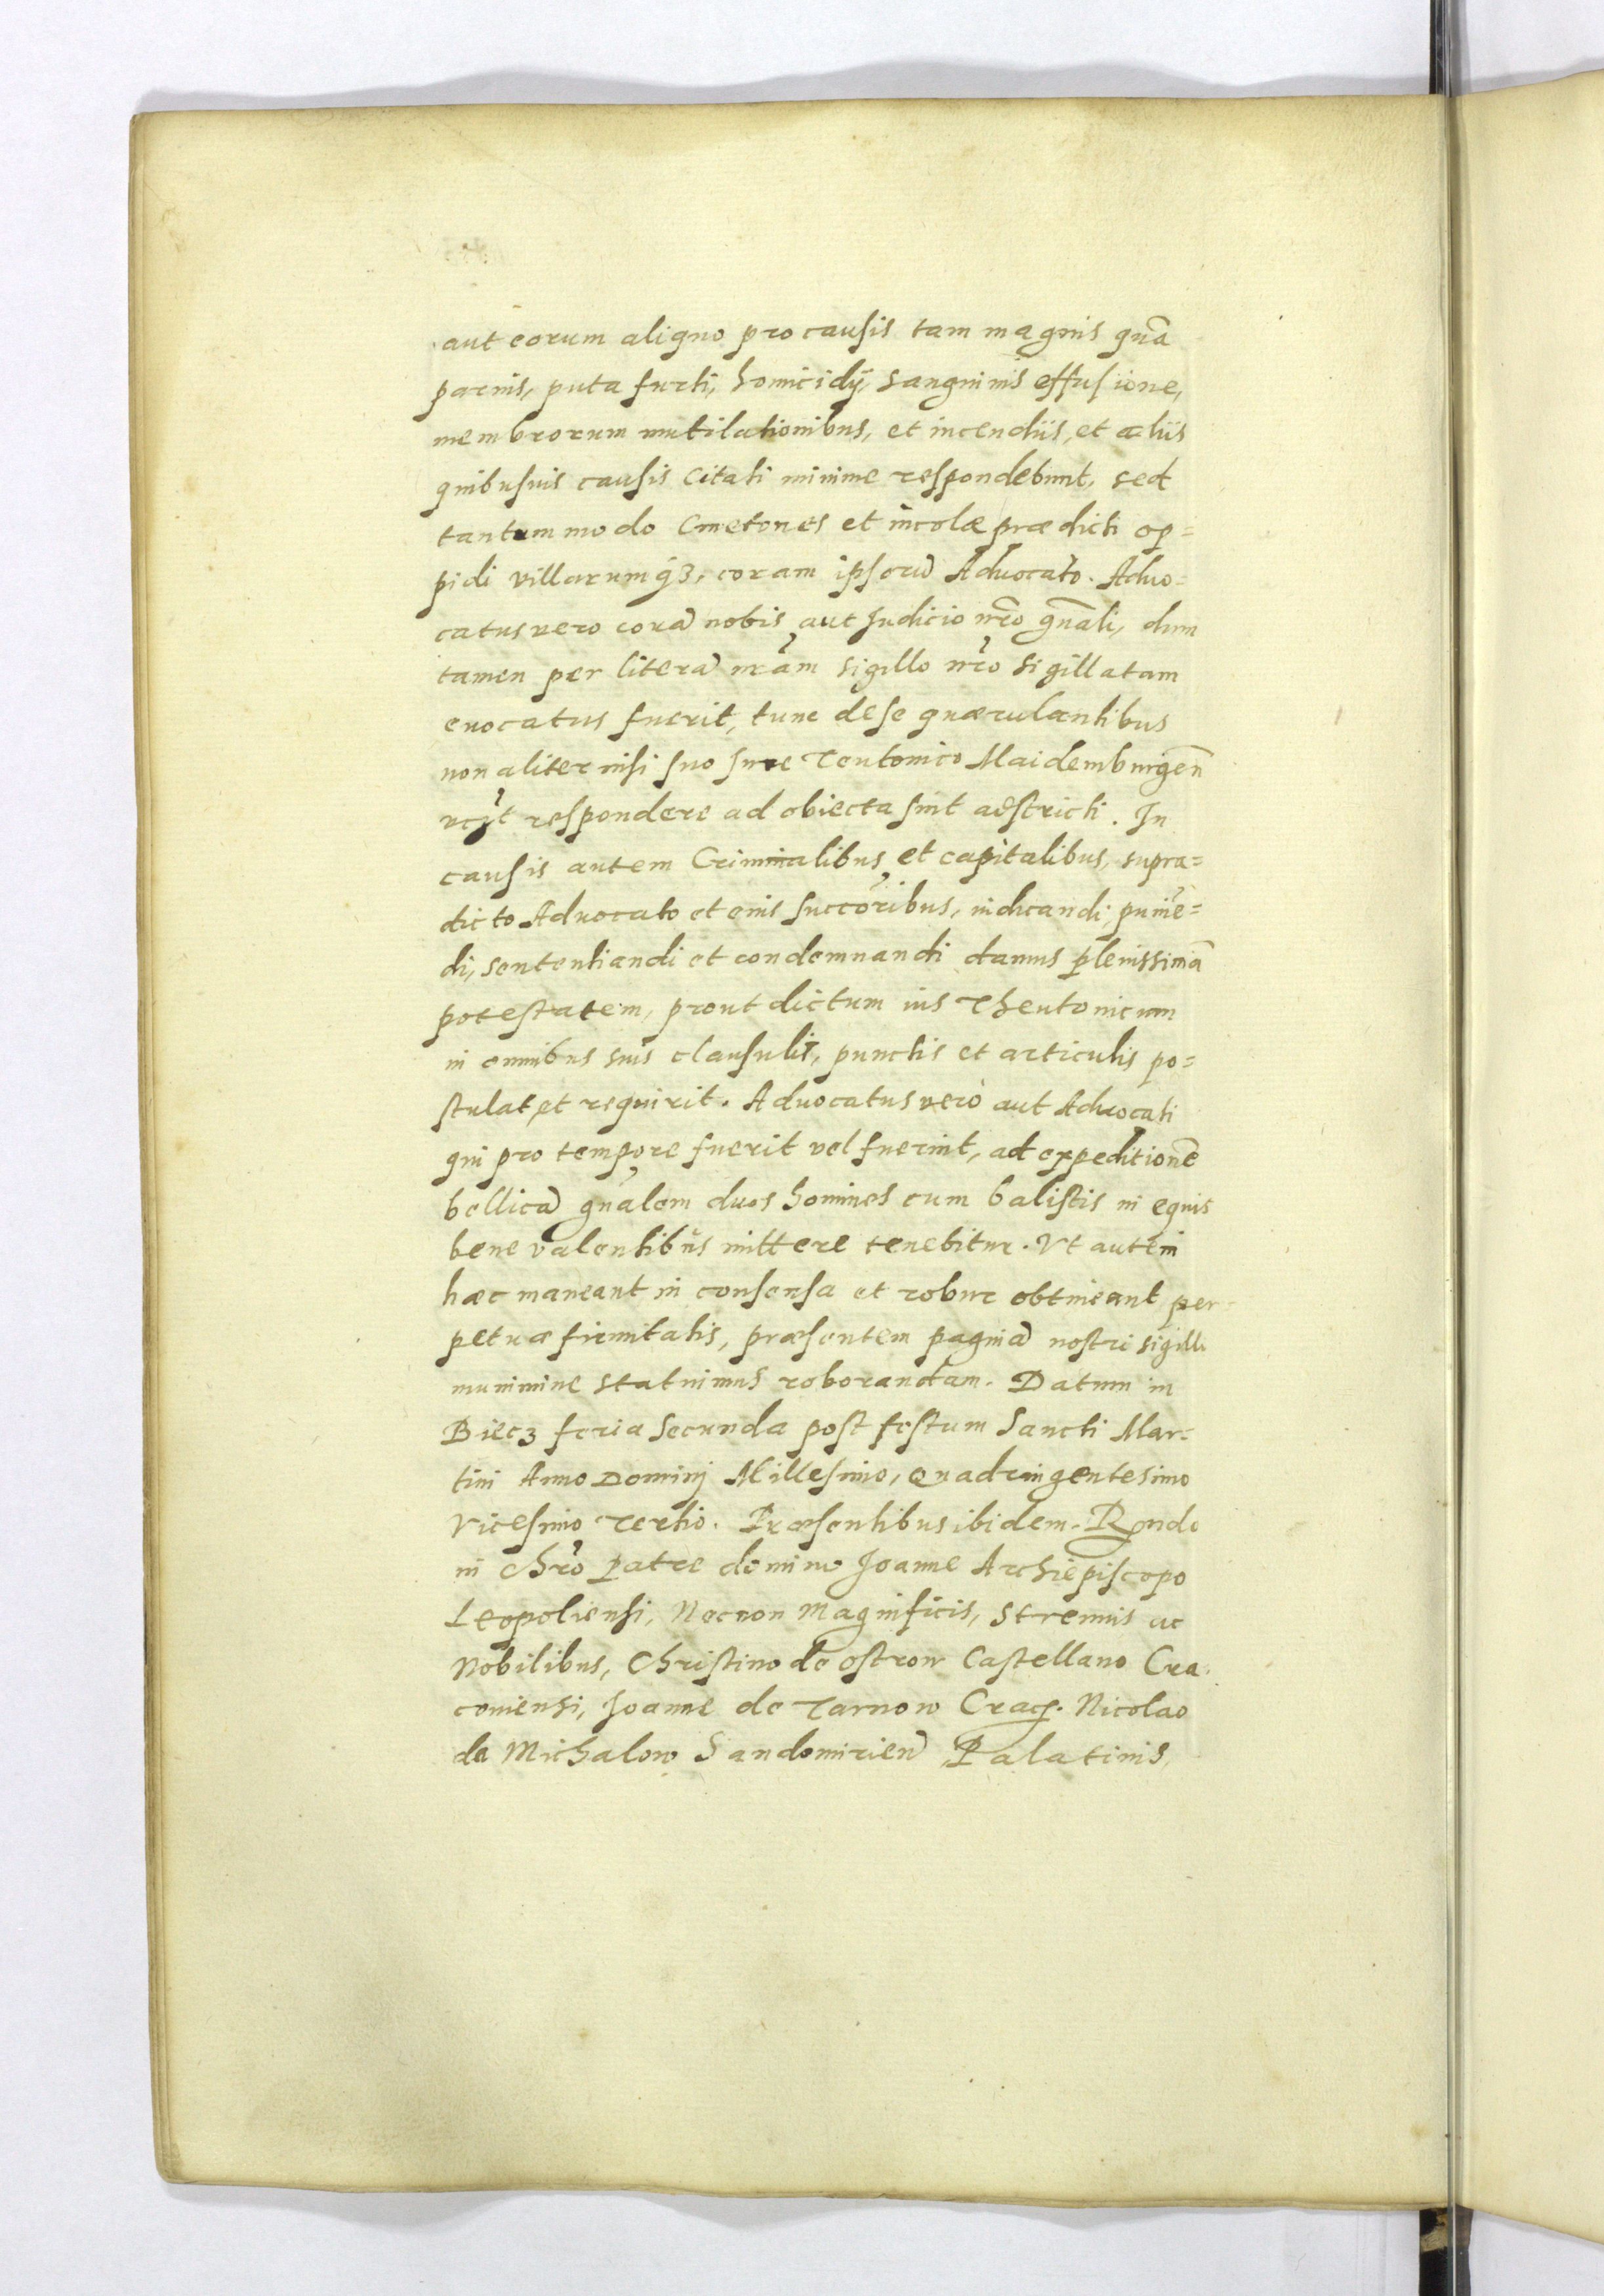 aut eorum aliquo pro causis tam magnis quã
paruis, puta furti, homicidÿ, sanguinis effusione,
membrorum mutilationibus, et incendiis, et aliis
quibusuis causis Citati minime respondebunt, sed
tantummodo Cmetones et incolæ prædicti op=
pidi villarumqȝ, coram ipsorũ Aduocato. Aduo=
catus vero corã nobis aut Iudicio nr̃o gñali, dum
tamen per literã nr̃am sigillo nr̃o sigillatam
euocatus fuerit, tunc de se quærulantibus
non aliter nisi suo Iure Teutonico Maidemburgeñ
respondere ad obiecta sint adstricti. In
causis autem Criminalibus et capitalibus, supra=
dicto Aduocato et eius succõribus, iudicandi, puniẽ=
di, sententiandi et condemnandi damus plenissimã
potestatem, prout dictum ius Theutonicum
in omnibus suis clausulis, punctis et articulis po=
stulat et requirit. Aduocatus verò aut Aduocati
qui pro tempore fuerit vel fuerint, ad expeditionẽ
bellicã gñalem duos homines cum balistis in equis
bene valentibus mittere tenebitur. Vt autem
hæc maneant in consensa et robur obtineant per=
petuæ firmitatis, præsentem paginã nostri sigilli
munimine statuimus roborandam. Datum in
Biecȝ feria Secunda post festum Sancti Mar=
tini Anno Dominj Millesimo, Quadringentesimo
Vicesimo Tertio. Præsentibus ibidem. Rgndo
in Chr̃o patre domino Joanne Archiepiscopo
Leopoliensi, Necnon Magnificis, Strenuis ac
Nobilibus, Christino de ostrow Castellano Cra=
couiensi, Joanne de Tarnow Crac. Nicolao
de Michalow Sandomirieñ Palatinis,